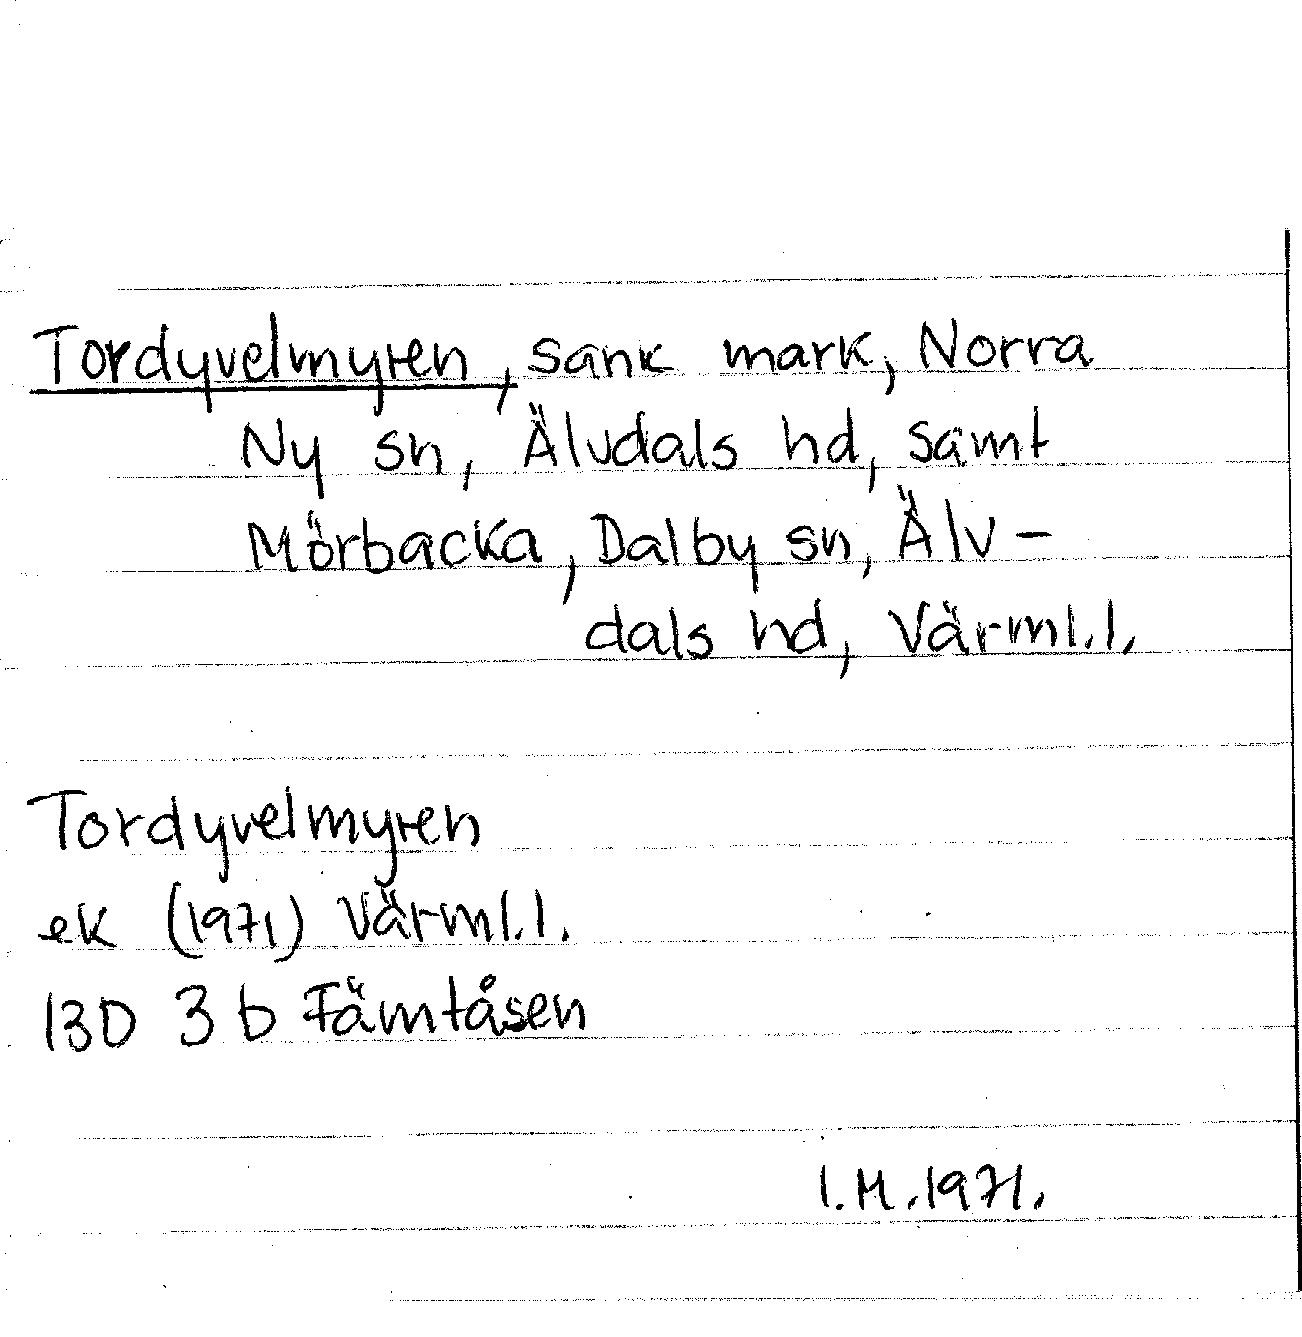 Tordyvelmyren, sank mark, Norra
Ny sn, Älvdals hd, samt
Mörbacka, Dalby sn, Älv-
dals hd, Värml.l.
Tordyvelmyren
ek (1971) Värml.l.
13D 3b Fämtåsen
I.M.1971.